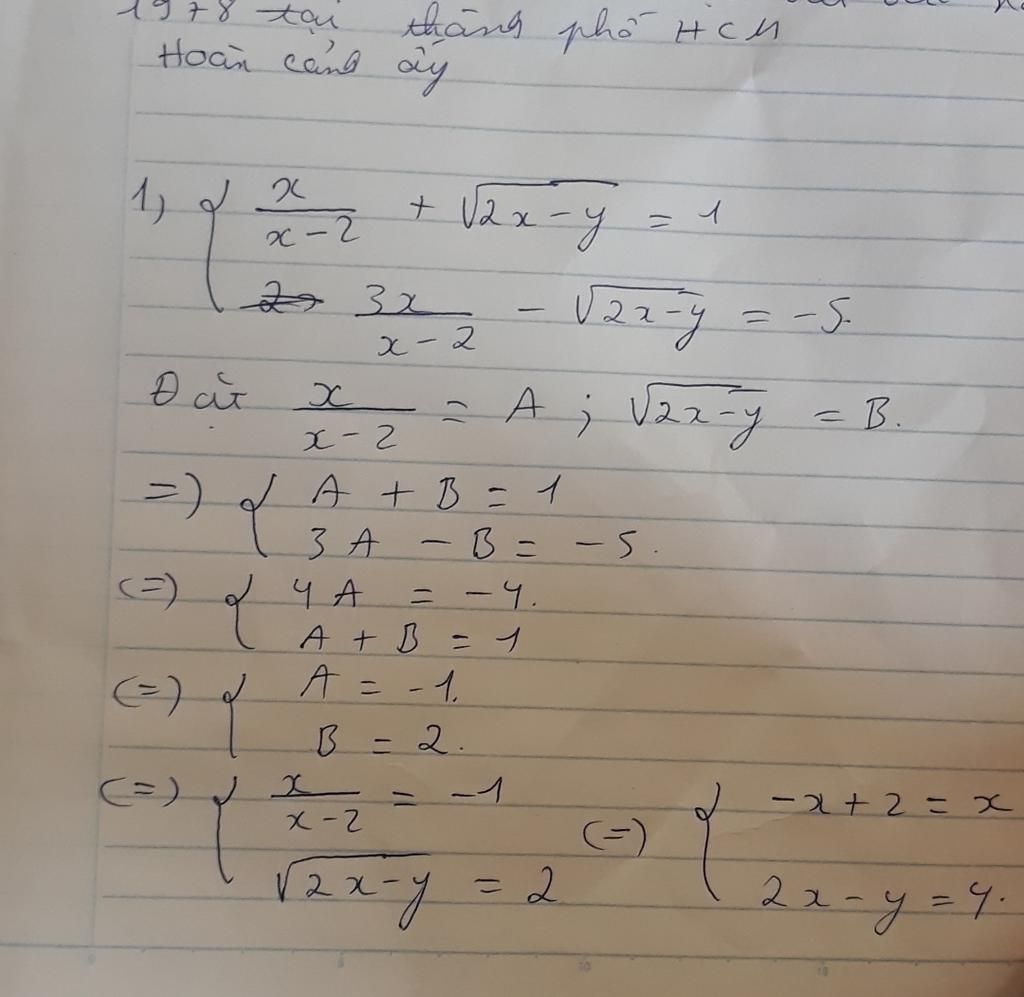 1978 tại thàng phố HCM
Hoàn cảnh ấy
1, { x/(x-2) + √(2x-y) = 1
3x/(x-2) - √(2x-y) = -5.
Đặt x/(x-2) = A ; √(2x-y) = B.
=) { A + B = 1
3A - B = -5.
(=) { 4A = -4.
A + B = 1
(=) { A = -1.
B = 2.
(=) { x/(x-2) = -1 (=) { -x+2 = x
√(2x-y) = 2 2x-y = 4.